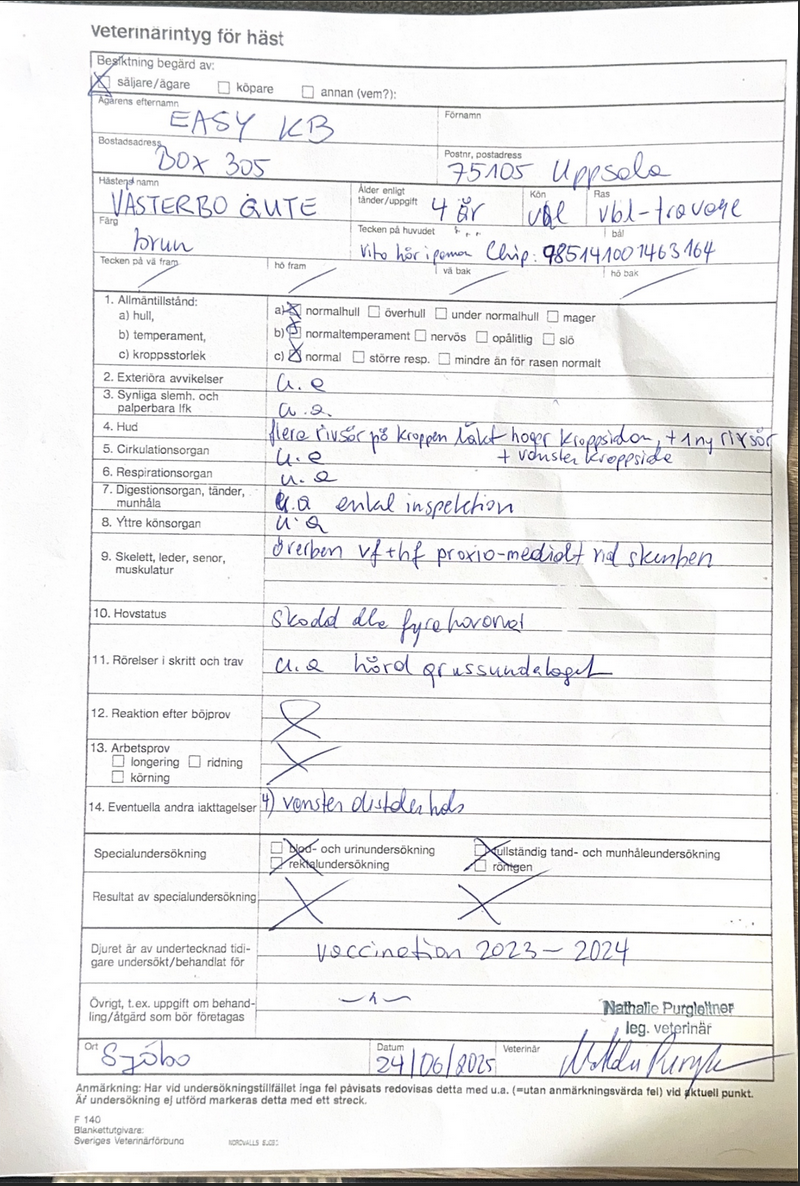 Veterinärintyg för häst
Besiktning begärd av:
säljare/ägare köpare annan (vem?):
Ägarens efternamn Förnamn
EASY KB
Bostadsadress Postnr, postadress
BOX 305 75105 Uppsala
Hästens namn Ålder enligt tänder/uppgift Kön Ras
VÄSTERBO GUTE 4 år val vbl-travare
Färg Tecken på huvudet bål
brun Vita hår i panna Chip: 985141001463164
Tecken på vä fram hö fram vä bak hö bak
1. Allmäntillstånd:
a) hull, a) normalhull överhull under normalhull mager
b) temperament, b) normaltemperament nervös opålitlig slö
c) kroppsstorlek c) normal större resp. mindre än för rasen normalt
2. Exteriöra avvikelser u.a
3. Synliga slemh. och
palperbara lfk u.a.
4. Hud flera rivsår på kroppen läkt höger kroppsidan, + 1 ny rivsår
+ vänster kroppside
5. Cirkulationsorgan u.a
6. Respirationsorgan u.a
7. Digestionsorgan, tänder,
munhåla u.a enkal inspektion
8. Yttre könsorgan u.a
9. Skelett, leder, senor,
muskulatur överben vf+hf proxio-medialt vid skenben
10. Hovstatus skodd alla fyra hovarna
11. Rörelser i skritt och trav u.a hård grussundalaget
12. Reaktion efter böjprov
13. Arbetsprov
longering ridning
körning
14. Eventuella andra iakttagelser 4) vänster distala hals
Specialundersökning blod- och urinundersökning fullständig tand- och munhåleundersökning
rektalundersökning röntgen
Resultat av specialundersökning
Djuret är av undertecknad tidi-
gare undersökt/behandlat för vaccination 2023-2024
Övrigt, t.ex. uppgift om behand-
ling/åtgärd som bör företagas
Nathalie Purgleitner
leg. veterinär
Ort Datum Veterinär
Sjöbo 24/06/2025
Anmärkning: Har vid undersökningstillfället inga fel påvisats redovisas detta med u.a. (=utan anmärkningsvärda fel) vid aktuell punkt.
Är undersökning ej utförd markeras detta med ett streck.
F 140
Blankettutgivare:
Sveriges Veterinärförbund